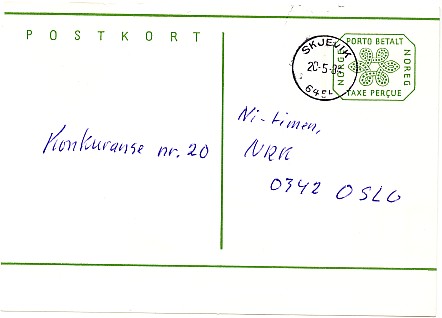 POSTKORT
SKJEVIK
20-5-8
PORTO BETALT
NORGE
NOREG
TAXE PERÇUE
Konkuranse nr. 20
Ni-timen,
NRK
0342 OSLO